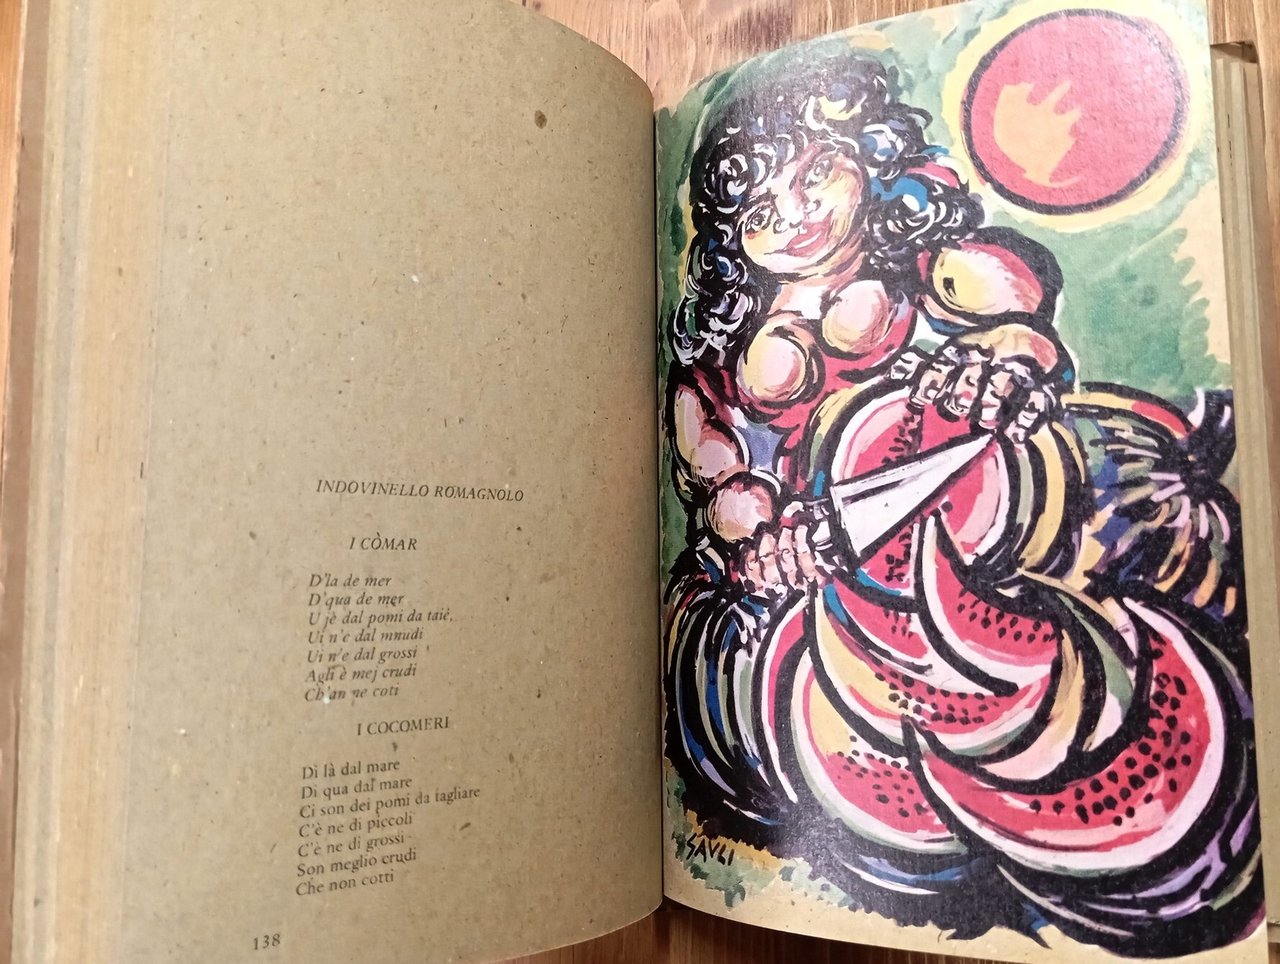 INDOVINELLO ROMAGNOLO
I CÒMAR
D'la de mer
D'qua de mer
U jè dal pomi da taié,
Ui n'e dal mnudi
Ui n'e dal grossi
Agli è mej crudi
Ch'an ne coti
I COCOMERI
Di là dal mare
Di qua dal mare
Ci son dei pomi da tagliare
C'è ne di piccoli
C'è ne di grossi
Son meglio crudi
Che non cotti
138
SAULI